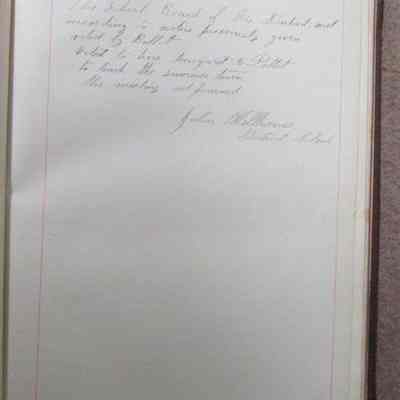 The School Board of Dis. District met
according to notice previously given
voted by Ballot
Voted to hire Margaret E Pellet
to teach the summer term
the meeting adjourned
John Williams
District School